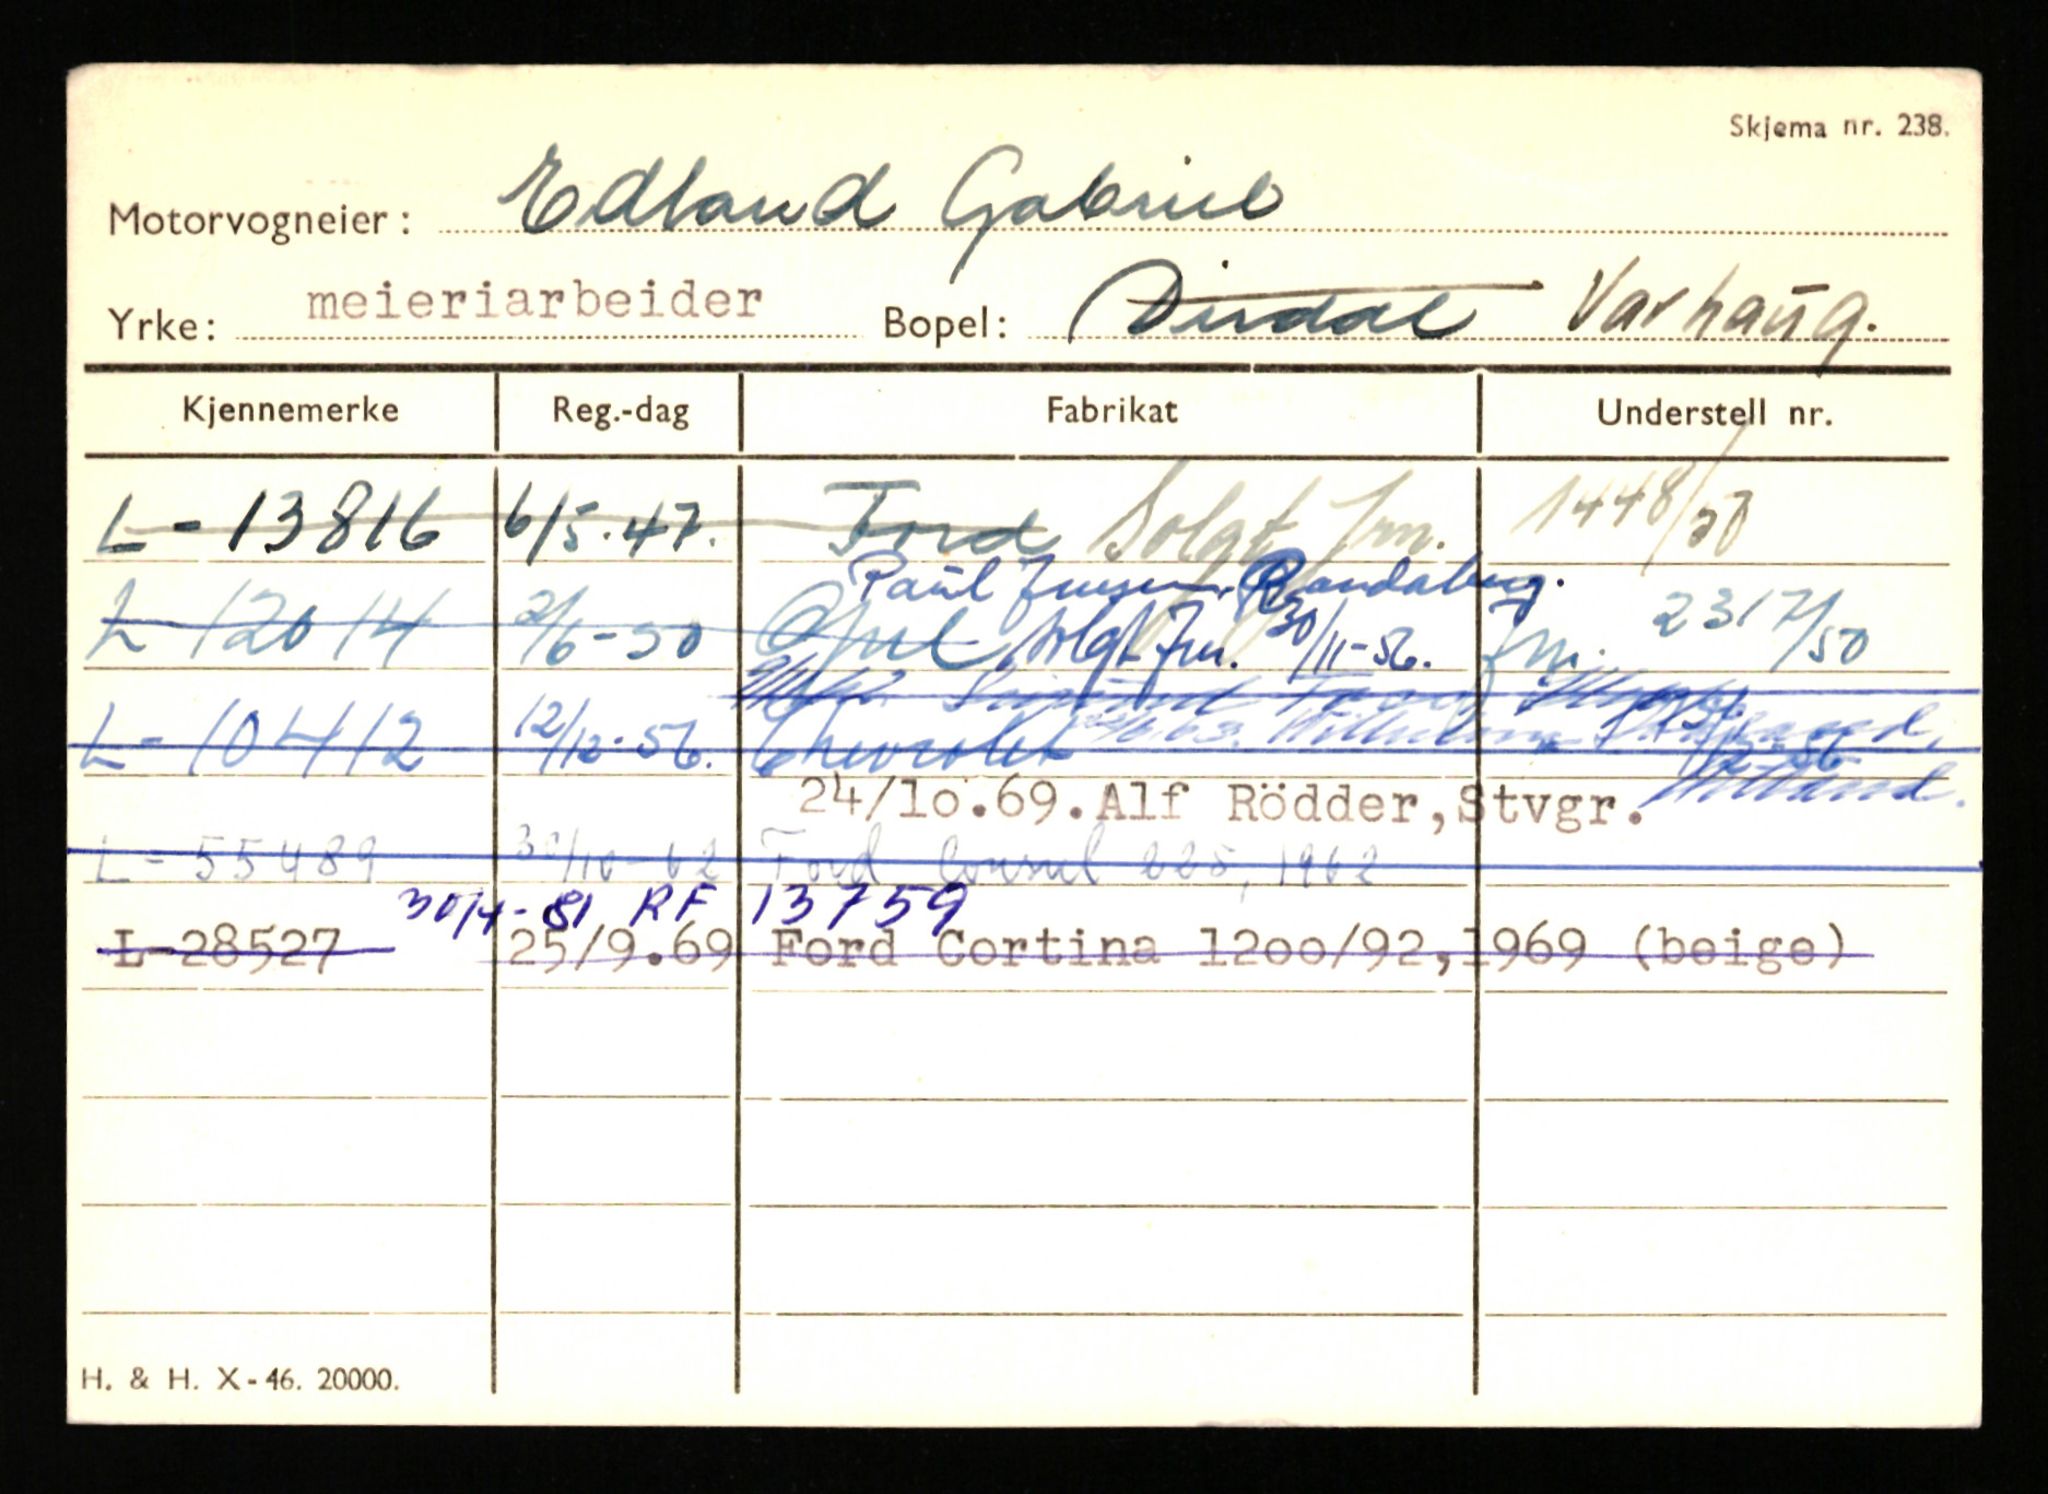 Skjema nr. 238.
Motorvogneier: Edland Gabriel
Yrke: meieriarbeider Bopel: Dirdal Varhaug.
Kjennemerke Reg.-dag Fabrikat Understell nr.
L-13816 6/5.47. Ford Solgt frn. 1448/50
Paul Randaberg.
L-12014 2/6-50 Opel solgt frn. 30/11-56. frn. 2317/50
L-10412 12/12-56. Chevrolet
24/10.69. Alf Rödder, Stvgr.
L-55489 30/10-62 Ford Consul 225, 1962
30/4-81 RF 13759
L-28527 25/9.69 Ford Cortina 1200/92, 1969 (beige)
H. & H. X-46. 20000.